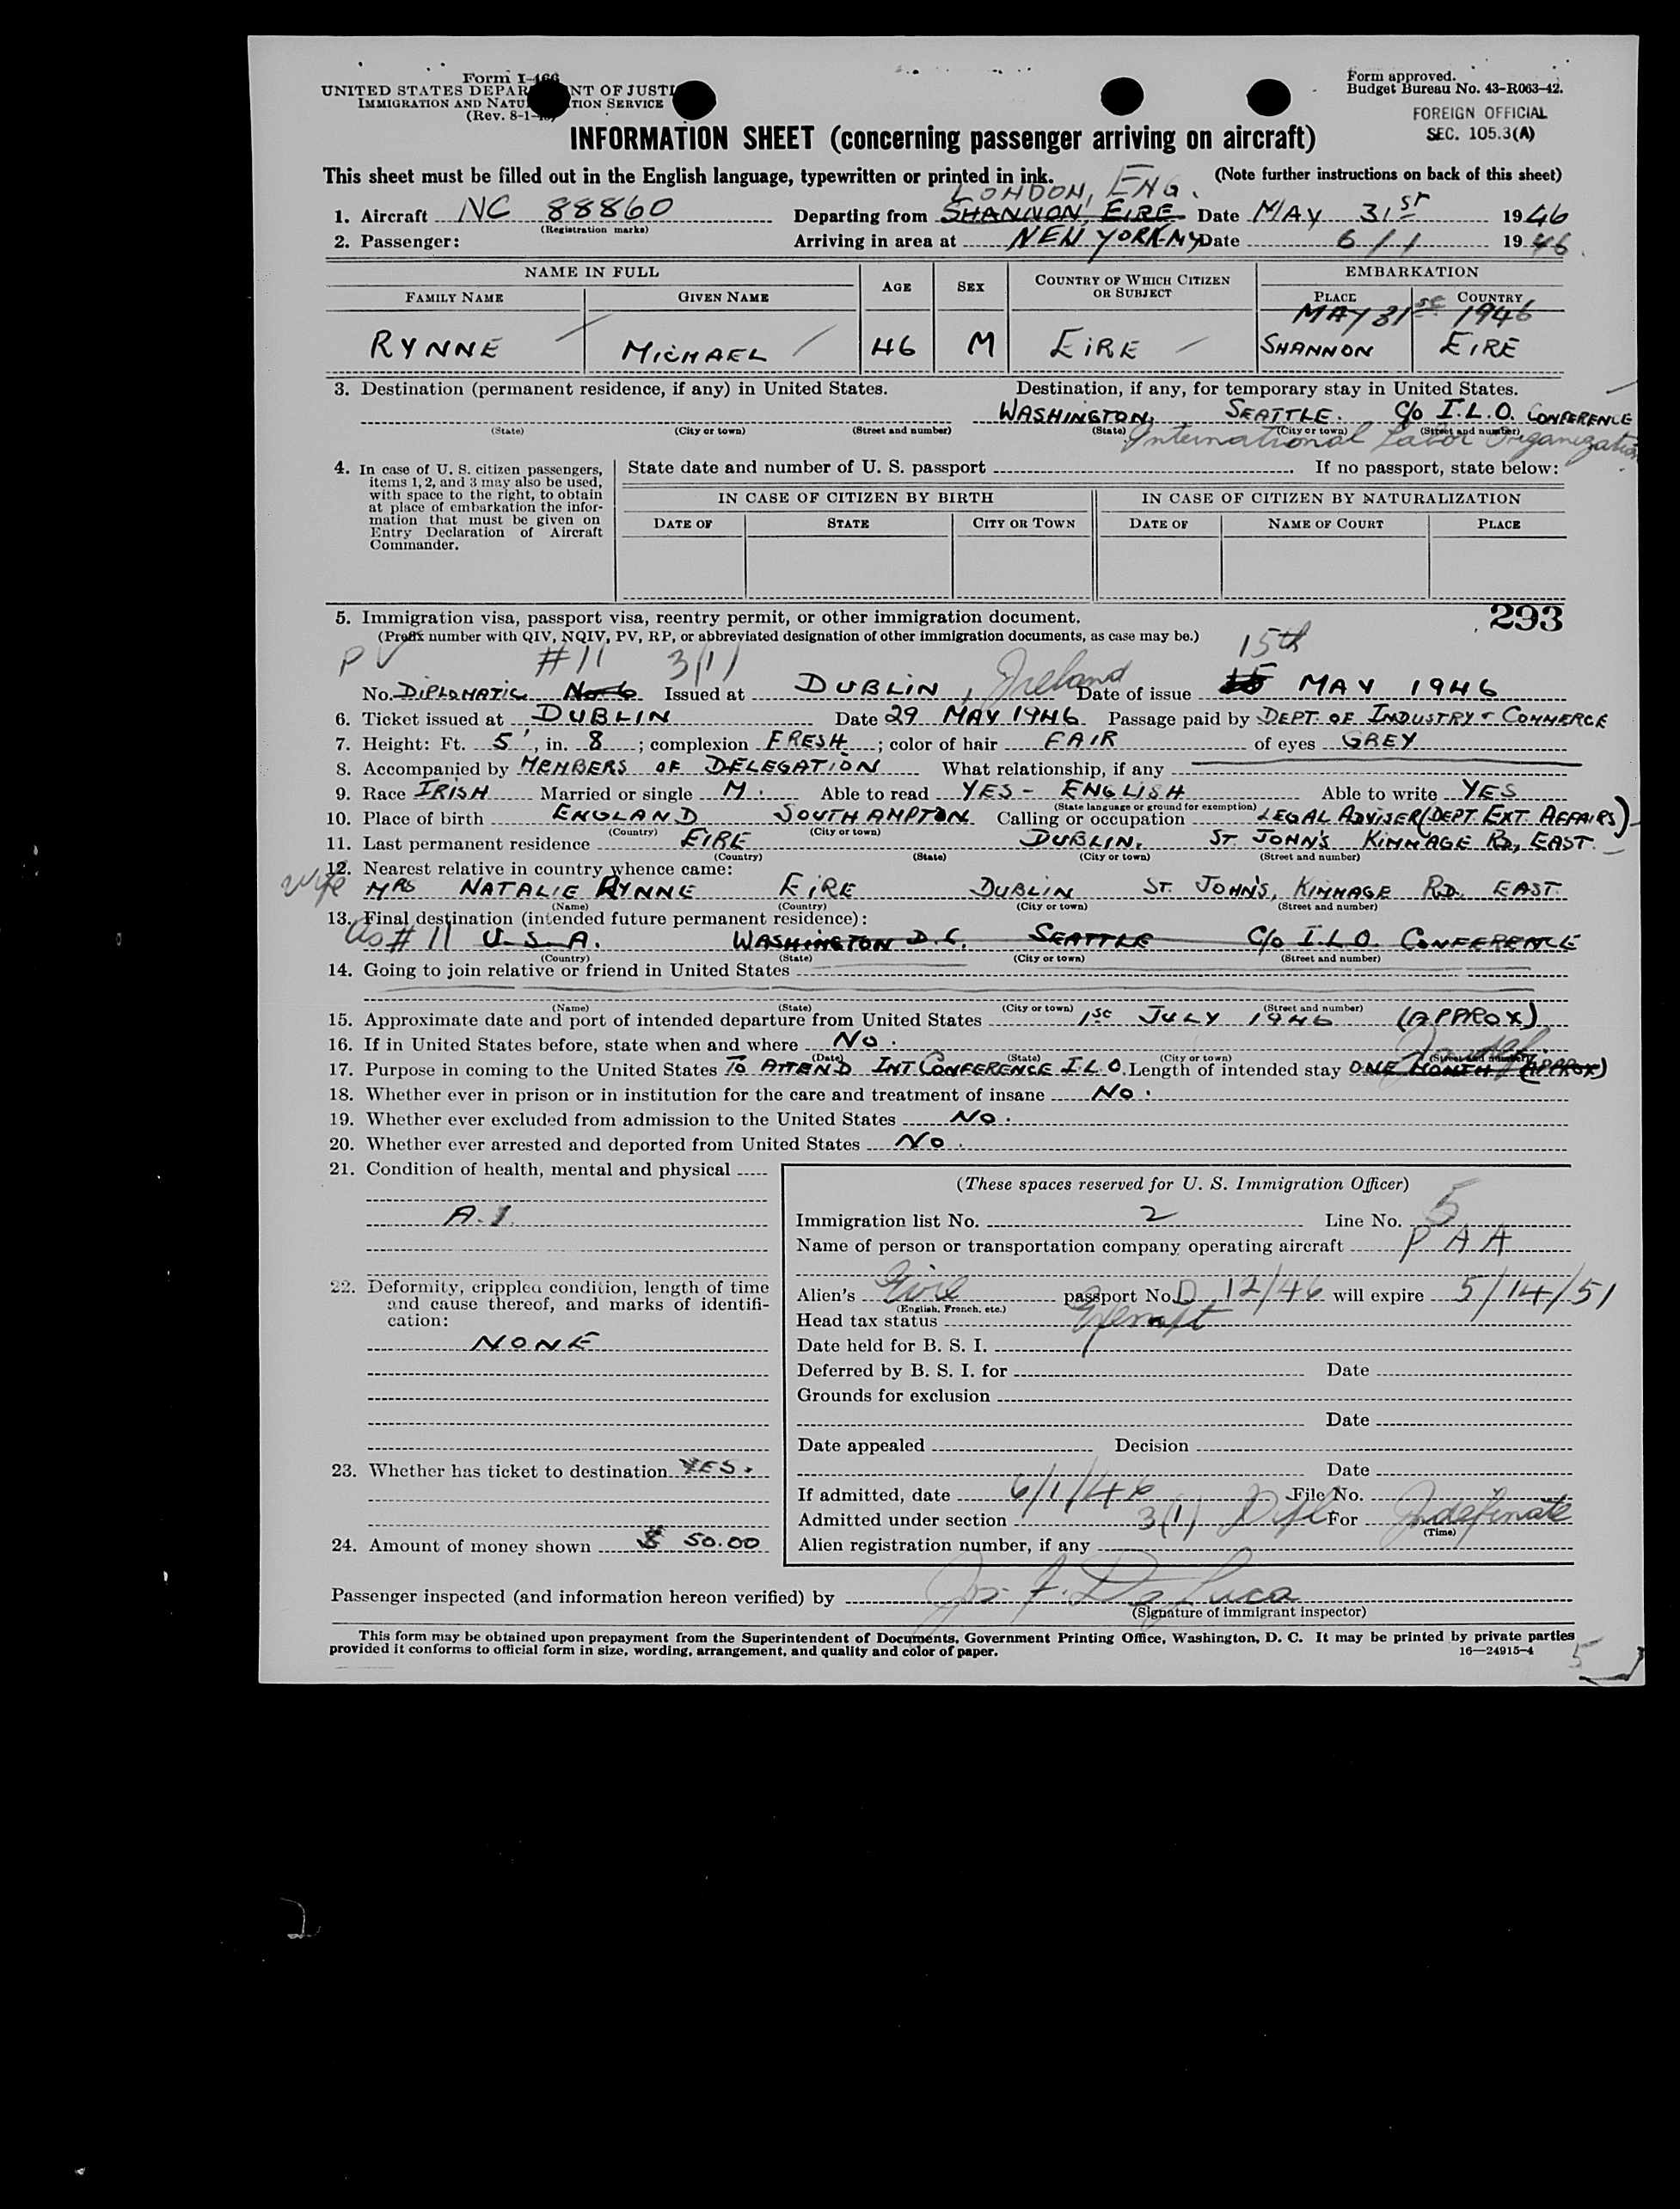 Form I-466
UNITED STATES DEPAR NT OF JUSTI
IMMIGRATION AND NATU TION SERVICE
(Rev. 8-1-
Form approved.
Budget Bureau No. 43-R063-42.
FOREIGN OFFICIAL
SEC. 105.3(A)
INFORMATION SHEET (concerning passenger arriving on aircraft)
This sheet must be filled out in the English language, typewritten or printed in ink. (Note further instructions on back of this sheet)
LONDON, ENG.
1. Aircraft NC 88860 Departing from SHANNON, EIRE Date MAY 31ST 1946
(Registration marks)
2. Passenger: Arriving in area at NEW YORK-NY Date 6/1 1946
NAME IN FULL AGE SEX COUNTRY OF WHICH CITIZEN OR SUBJECT EMBARKATION
FAMILY NAME GIVEN NAME PLACE COUNTRY
MAY 31st 1946
RYNNE MICHAEL 46 M EIRE SHANNON EIRE
3. Destination (permanent residence, if any) in United States. Destination, if any, for temporary stay in United States.
WASHINGTON, SEATTLE. C/o I.L.O. CONFERENCE
(State) (City or town) (Street and number) (State) (City or town) (Street and number)
International Labor Organization
4. In case of U. S. citizen passengers, items 1, 2, and 3 may also be used, with space to the right, to obtain at place of embarkation the information that must be given on Entry Declaration of Aircraft Commander.
State date and number of U. S. passport If no passport, state below:
IN CASE OF CITIZEN BY BIRTH IN CASE OF CITIZEN BY NATURALIZATION
DATE OF STATE CITY OR TOWN DATE OF NAME OF COURT PLACE
293
5. Immigration visa, passport visa, reentry permit, or other immigration document.
(Prefix number with QIV, NQIV, PV, RP, or abbreviated designation of other immigration documents, as case may be.)
PV #11 3(1) 15th
No. DIPLOMATIC No 6 Issued at DUBLIN, Ireland Date of issue 15 MAY 1946
6. Ticket issued at DUBLIN Date 29 MAY 1946 Passage paid by DEPT. OF INDUSTRY & COMMERCE
7. Height: Ft. 5', in. 8; complexion FRESH; color of hair FAIR of eyes GREY
8. Accompanied by MEMBERS OF DELEGATION What relationship, if any
9. Race IRISH Married or single M. Able to read YES - ENGLISH Able to write YES
(State language or ground for exemption)
10. Place of birth ENGLAND SOUTHAMPTON Calling or occupation LEGAL ADVISER (DEPT. EXT AFFAIRS)
(Country) (City or town)
11. Last permanent residence EIRE DUBLIN, ST. JOHN'S KIMMAGE RD, EAST.
(Country) (State) (City or town) (Street and number)
12. Nearest relative in country whence came:
Wife MRS NATALIE RYNNE EIRE DUBLIN ST. JOHN'S, KIMMAGE RD. EAST.
(Name) (Country) (City or town) (Street and number)
13. Final destination (intended future permanent residence):
As #11 U.S.A. WASHINGTON D.C. SEATTLE C/o I.L.O. CONFERENCE
(Country) (State) (City or town) (Street and number)
14. Going to join relative or friend in United States
(Name) (State) (City or town) (Street and number)
15. Approximate date and port of intended departure from United States 1st JULY 1946 (APPROX)
16. If in United States before, state when and where No.
(Date) (State) (City or town) (Street and number)
17. Purpose in coming to the United States TO ATTEND INT CONFERENCE I.L.O. Length of intended stay ONE MONTH (APPROX)
18. Whether ever in prison or in institution for the care and treatment of insane No.
19. Whether ever excluded from admission to the United States No.
20. Whether ever arrested and deported from United States No.
21. Condition of health, mental and physical
A.1.
22. Deformity, crippled condition, length of time and cause thereof, and marks of identification:
NONE
23. Whether has ticket to destination YES.
24. Amount of money shown $ 50.00
(These spaces reserved for U. S. Immigration Officer)
Immigration list No. 2 Line No. 5
Name of person or transportation company operating aircraft PAA
Alien's Eire passport No. D 12/46 will expire 5/14/51
(English, French, etc.)
Head tax status Exempt
Date held for B. S. I.
Deferred by B. S. I. for Date
Grounds for exclusion
Date
Date appealed Decision
Date
If admitted, date 6/1/46 File No.
Admitted under section 3(1) Dipl For Indefinate
(Time)
Alien registration number, if any
Passenger inspected (and information hereon verified) by Jos. F. De Luca
(Signature of immigrant inspector)
This form may be obtained upon prepayment from the Superintendent of Documents, Government Printing Office, Washington, D. C. It may be printed by private parties
provided it conforms to official form in size, wording, arrangement, and quality and color of paper. 16—24915-4
5
2